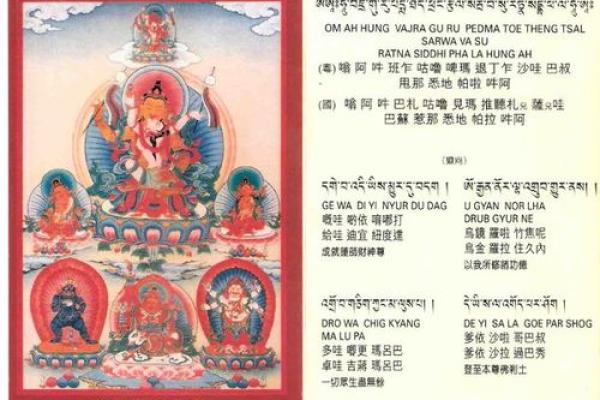 OM AH HUNG VAJRA GU RU PEDMA TOE THENG TSAL
SARWA VA SU
RATNA SIDDHI PHA LA HUNG AH
(粵) 嗡 阿 吽 班乍 咕嚕 啤瑪 退丁乍 沙哇 巴叔
甩那 悉地 帕啦 吽阿
(國) 嗡 阿 吽 巴札 咕嚕 見瑪 推聽札兒 薩兒哇
巴蘇 惹那 悉地 帕拉 吽阿
དགེ་བ་འདི་ཡིས་མྱུར་དུ་བདག །
GE WA DI YI NYUR DU DAG
嘅哇 啲依 嗱嘟打
給哇 迪宜 紐度達
成就蓮師財神尊
ཨོ་རྒྱན་ནོར་ལྷ་འགྲུབ་གྱུར་ནས། །
U GYAN NOR LHA
DRUB GYUR NE
烏鏡 羅啦 竹焦呢
烏金 羅拉 住久內
以我所修諸功德
འགྲོ་བ་གཅིག་ཀྱང་མ་ལུས་པ། །
DRO WA CHIG KYANG
MA LU PA
多哇 唧更 瑪呂巴
卓哇 吉蔣 瑪呂巴
一切眾生盡無餘
དེ་ཡི་ས་ལ་འགོད་པར་ཤོག །
DE YI SA LA GOE PAR SHOG
爹依 沙啦 哥巴叔
爹依 沙拉 過巴秀
登至本尊佛剎土